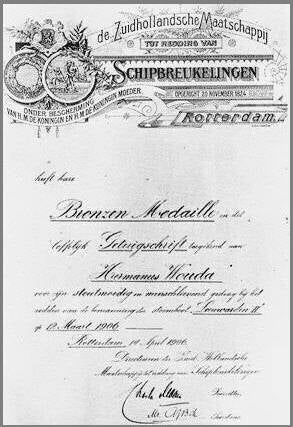 de Zuidhollandsche Maatschappij
TOT REDDING VAN
SCHIPBREUKELINGEN
OPGERICHT 20 NOVEMBER 1824
ONDER BESCHERMING
VAN H.M. DE KONINGIN EN H.M. DE KONINGIN MOEDER.
Rotterdam,
heeft hare
Bronzen Medaille en het
loffelijk Getuigschrift toegekend aan
Hermanus Wouda
voor zijn stoutmoedig en menschlievend gedrag bij het
redden van de bemanning der stoomboot "Leeuwarden II"
op 12 Maart 1906
Rotterdam, April 1906
Directeuren der Zuid Hollandsche
Maatschappij tot redding van Schipbreukelingen